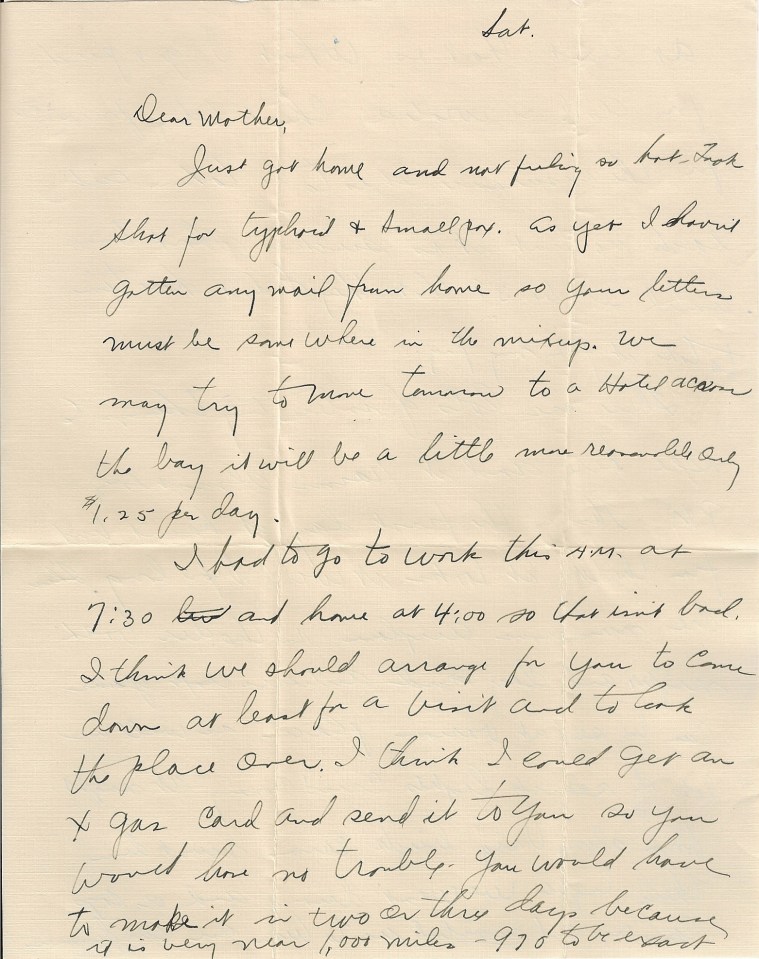 Sat.
Dear Mother,
Just got home and not feeling so hot - Took
shot for typhoid & small pox. As yet I haven't
gotten any mail from home so your letters
must be somewhere in the mixup. We
may try to move tomorrow to a Hotel across
the bay it will be a little more reasonable only
$1.25 per day.
I had to go to work this A.M. at
7:30 and home at 4:00 so that isn't bad.
I think we should arrange for you to come
down at least for a visit and to look
the place over. I think I could get an
X gas card and send it to you so you
would have no trouble. You would have
to make it in two or three days because
it is very near 1,000 miles - 970 to be exact